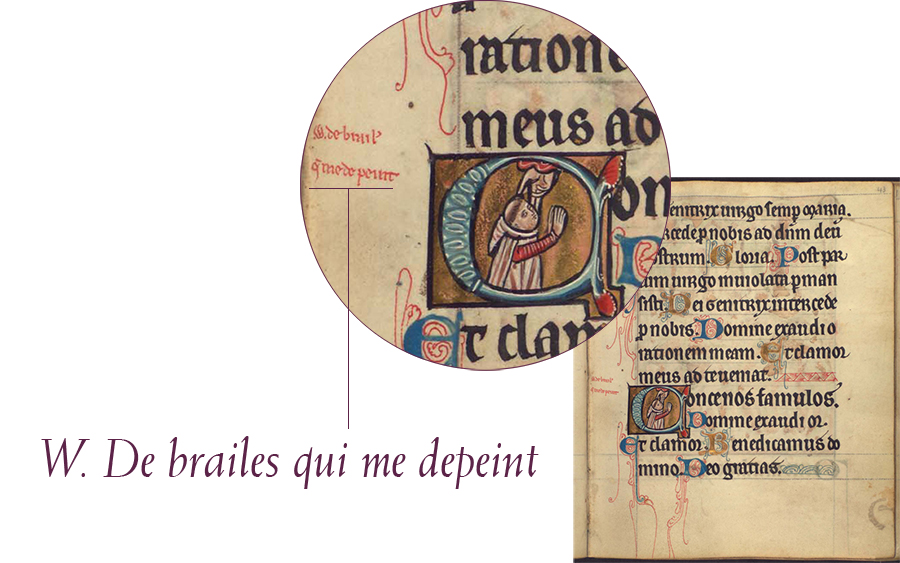 ratione
meus ad
w. de brail'
q' me depeint
on
Et clam
W. De brailes qui me depeint
48
Genitrix uirgo semp maria.
cede p nobis ad dnm deu
strum. Gloria. Post par
tum uirgo inuiolata pman
sisti. Dei genitrix intercede
p nobis. Domine exaudi o
rationem meam. Et clamor
meus ad te ueniat.
w. de brail'
q' me depeint
Concenos famulos.
Domine exaudi or.
Et clamor. Benedicamus do
mino. Deo gratias.